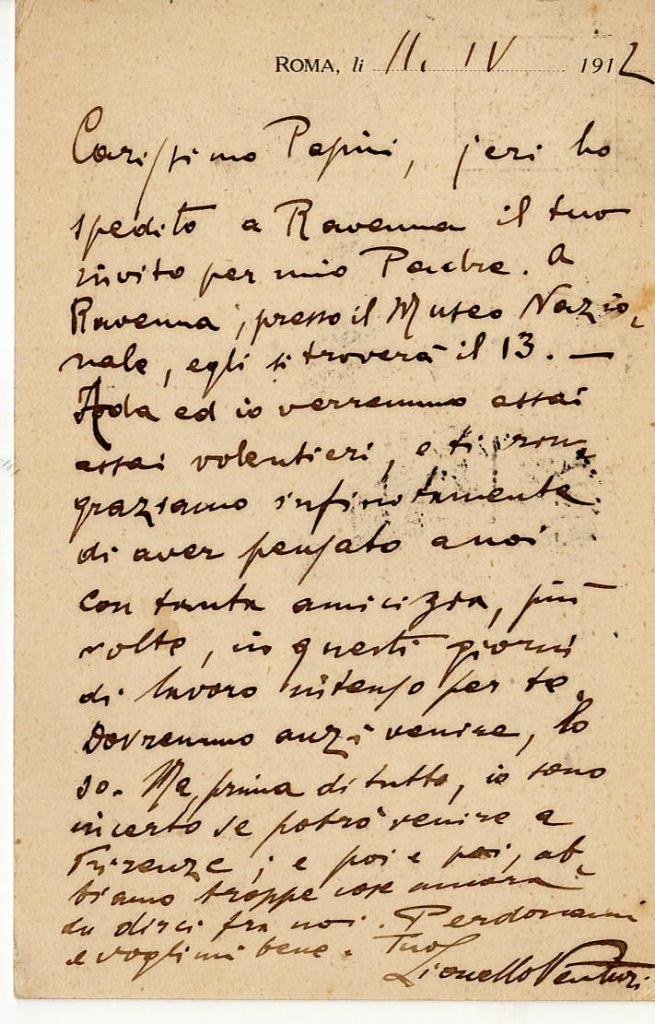 ROMA, li 11. IV 1912
Carissimo Papini, jeri ho
spedito a Ravenna il tuo
invito per mio Padre. A
Ravenna, presso il Museo Nazio-
nale, egli si troverà il 13. —
Ada ed io verremmo assai
assai volentieri, e ti rin-
graziamo infinitamente
di aver pensato a noi
con tanta amicizia, più
volte, in questi giorni
di lavoro intenso per te.
Dovremmo anzi venire, lo
so. Ma, prima di tutto, io sono
incerto se potrò venire a
Firenze; e poi e poi, ab-
biamo troppe cose ancora
da dirci fra noi. Perdonami
e voglimi bene. Tuo
Lionello Venturi